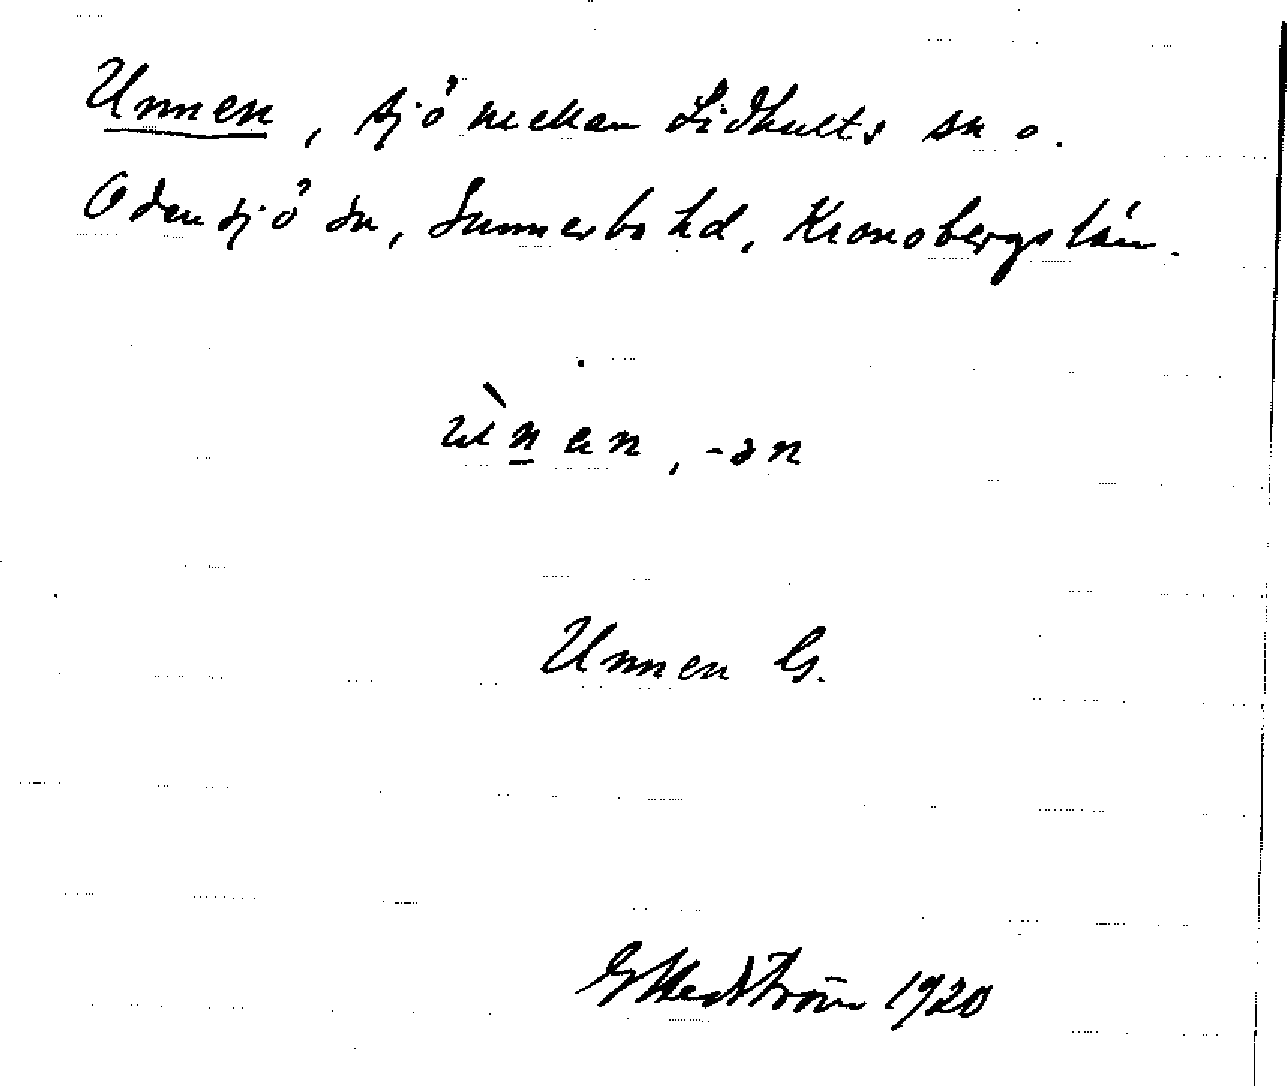 Unnen, sjö mellan Lidhults sn o.
Odensjö sn, Sunnerbo hd, Kronobergs län.
ùn̲en, -ən
Unnen G.
G Hedström 1920